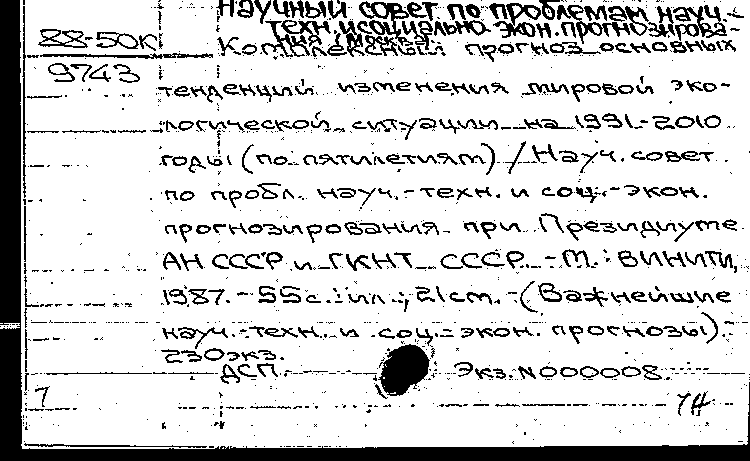 Научный совет по проблемам науч.-
техн. и социально-экон. прогнозирова-
ния (Москва)
88-50к
Комплексный прогноз основных
9743
тенденций изменения мировой эко-
логической ситуации на 1991-2010
годы (по пятилетиям) / Науч. совет
по пробл. науч.-техн. и соц.-экон.
прогнозирования при Президиуме
АН СССР и ГКНТ СССР. - М.: ВИНИТИ,
1987. - 55с.: ил.; 21см. - (Важнейшие
науч.-техн. и соц.-экон. прогнозы).
230экз.
ДСП. Экз. N000008.